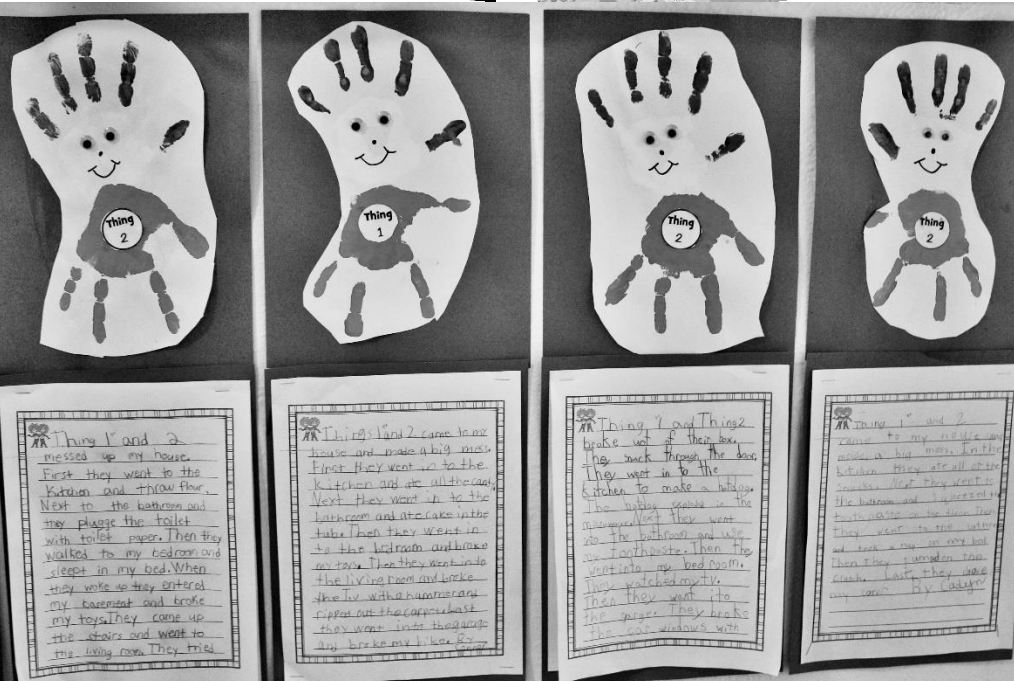 Thing
2
Thing
1
Thing
2
Thing
2
Thing 1 and 2
messed up my house.
First they went to the
kitchen and throw flour.
Next to the bathroom and
they plugge the toilet
with toilet paper. Then they
walked to my bedroom and
sleept in my bed. When
they woke up they entered
my basement and broke
my toys. They came up
the stairs and went to
the living room. They tried
Things 1 and 2 came to my
house and made a big mess.
First they went in to the
kitchen and ate all the candy.
Next they went in to the
bathroom and ate cake in the
tub. Then they went in
to the bedroom and broke
my toys. Then they went in to
the living room and broke
the T.V with a hammer and
ripped out the carpet. Last
they went into the garage
and broke my bike. By
Thing 1 and Thing 2
broke uot of their box.
They snack through the door.
They went in to the
kitchen to make a hotdog.
The hotdog in the
Next They went
into the bathroom and use
my toothpaste. Then the
went into my bedroom.
They watched my tv.
Then they went ito
the garge. They broke
the car windows with
Thing 1 and 2
came to my house and
made a big mess. In the
kitchen they ate all of the
snacks. Next they went to
the bathroom and the
toothpaste on the floor. Then
They went to the
and took a nap on my bed
Then they jumped on the
couch. Last they drove
my By Cailyn